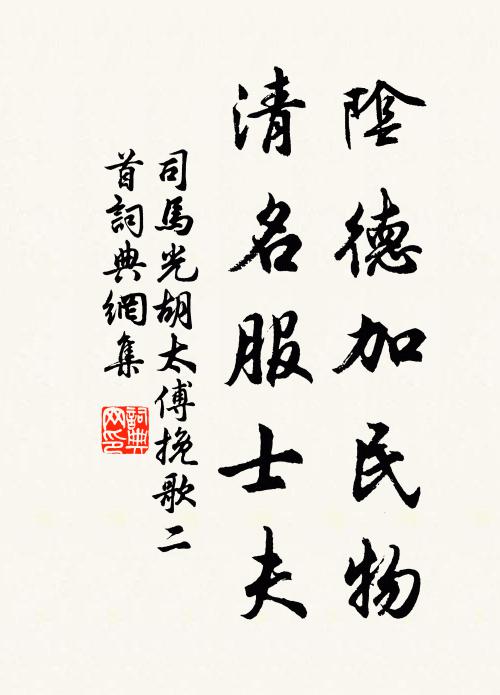 陰德加民物
清名服士夫
司馬光胡太傅挽歌二
首詞典網集
詞典
网印